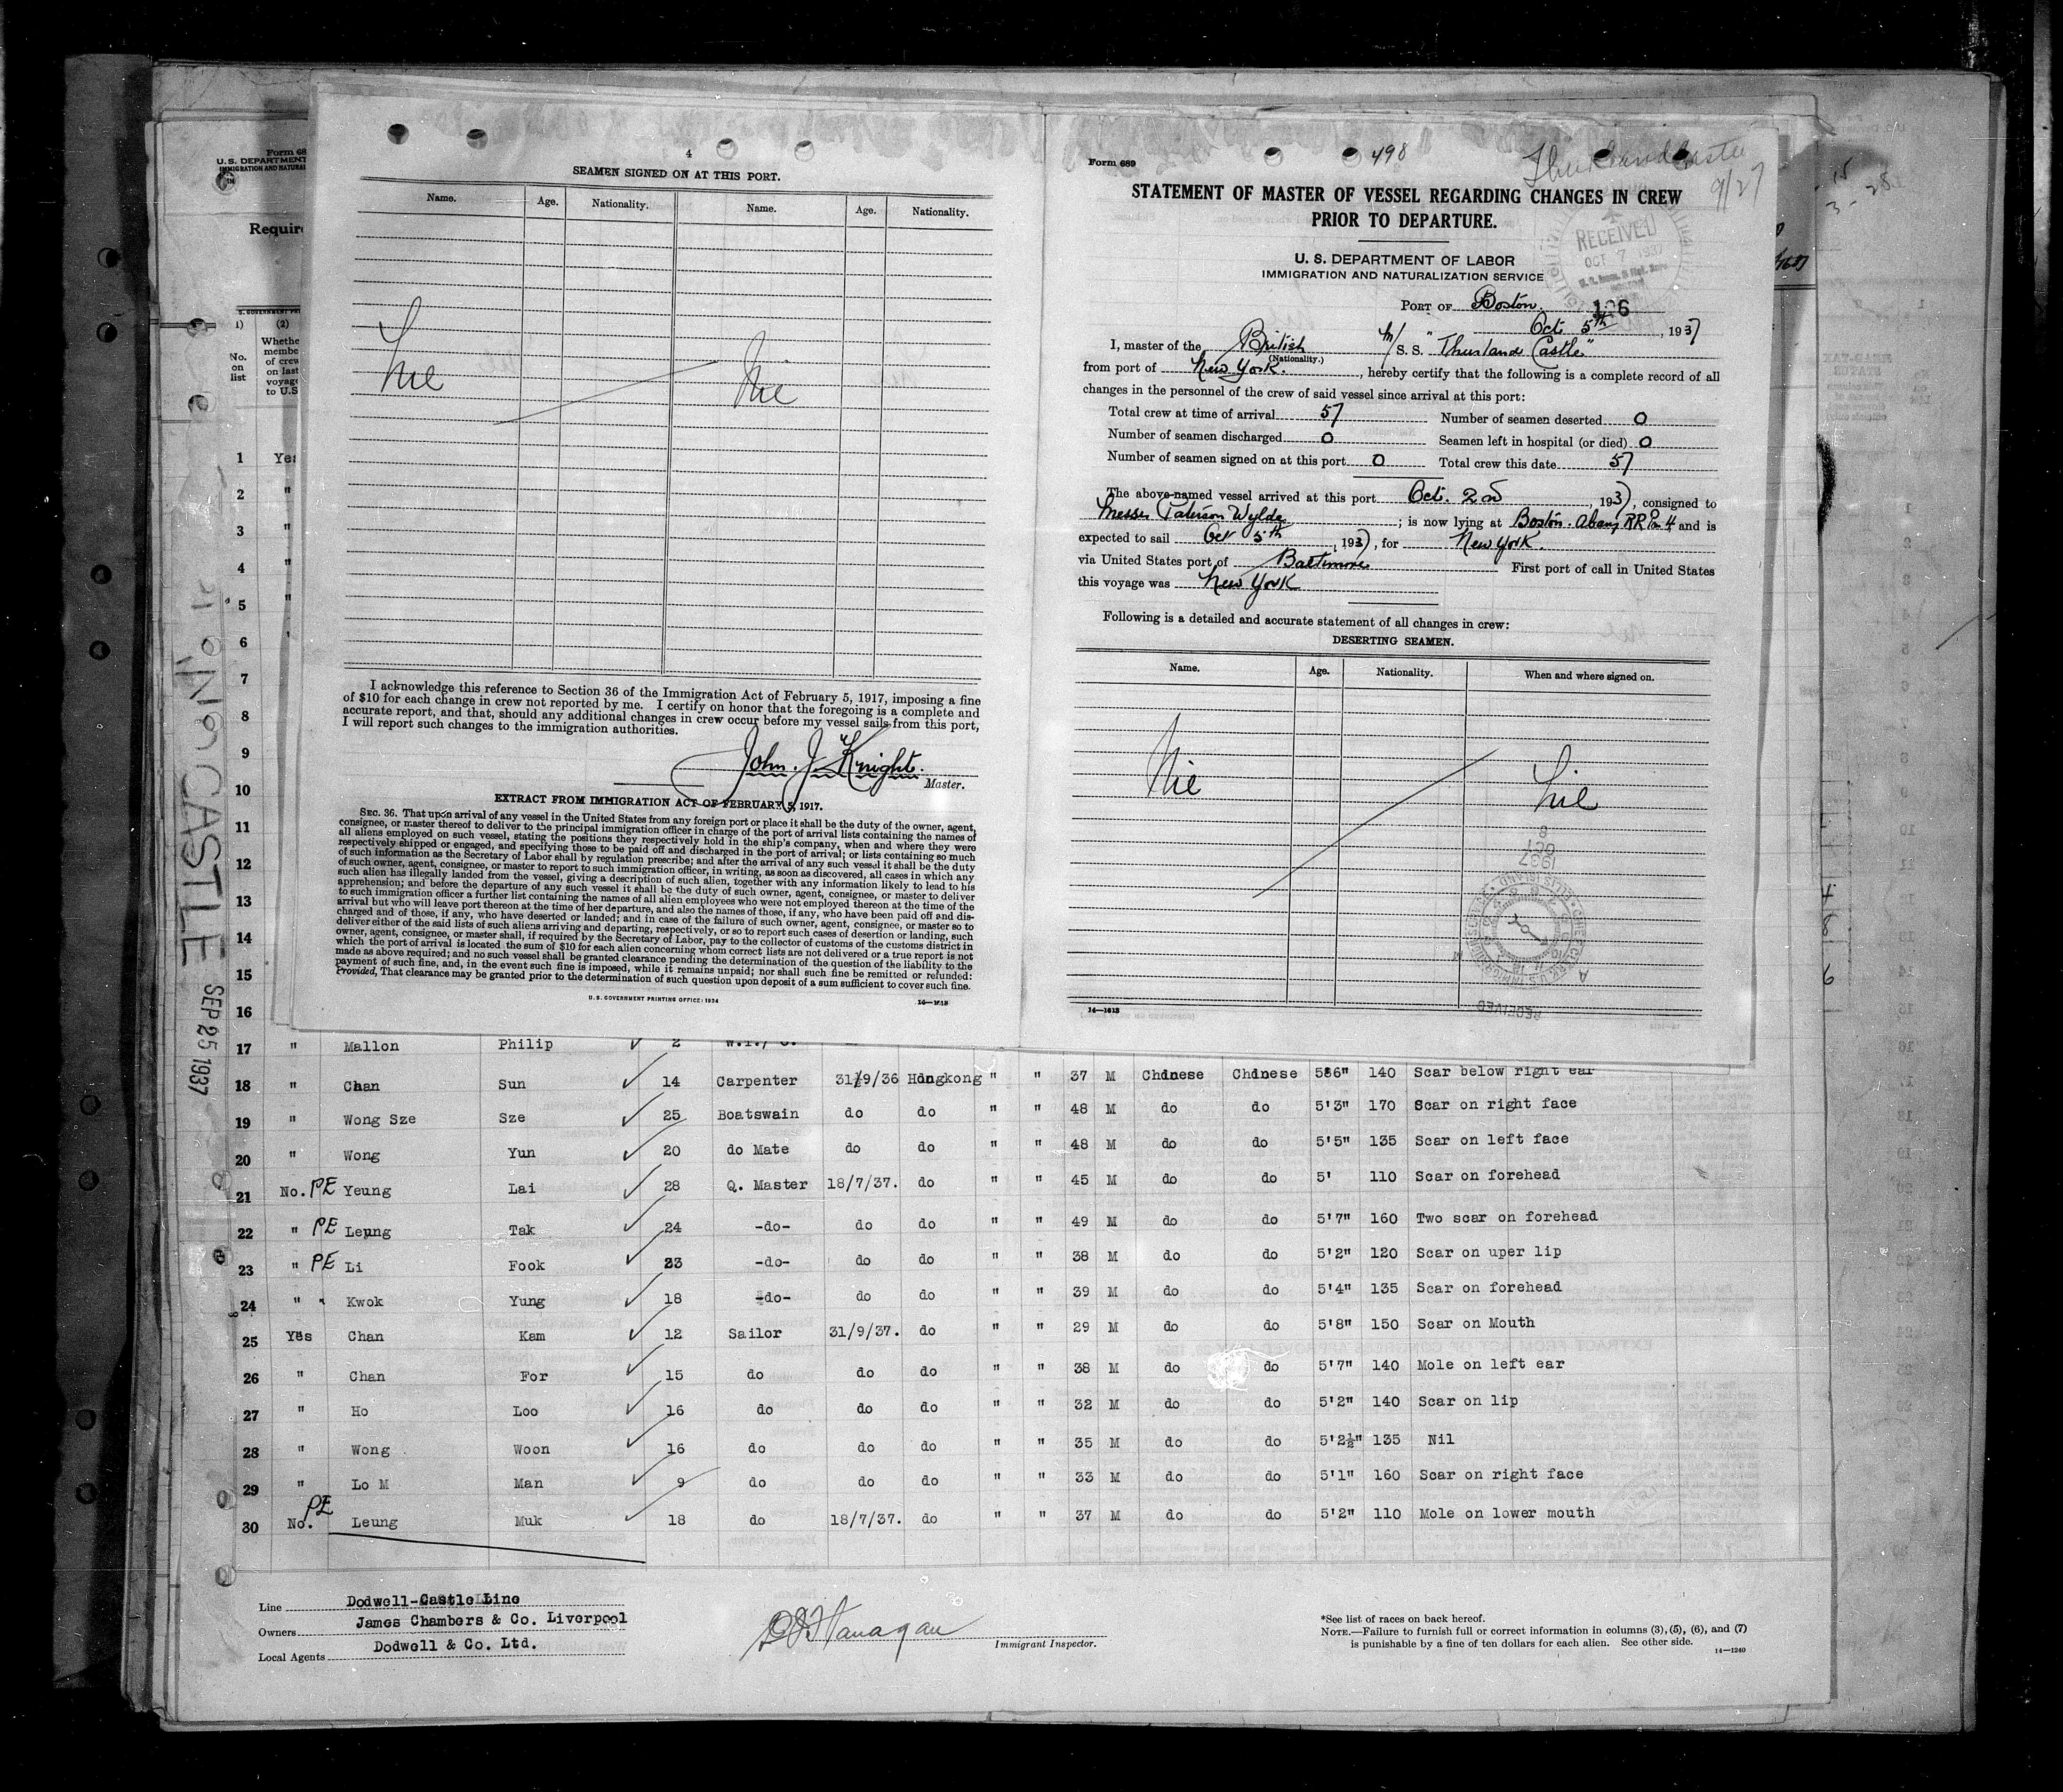 4
SEAMEN SIGNED ON AT THIS PORT.
Name. Age. Nationality. Name. Age. Nationality.
Nil Nil
I acknowledge this reference to Section 36 of the Immigration Act of February 5, 1917, imposing a fine
of $10 for each change in crew not reported by me. I certify on honor that the foregoing is a complete and
accurate report, and that, should any additional changes in crew occur before my vessel sails from this port,
I will report such changes to the immigration authorities.
John. J. Knight.
Master.
EXTRACT FROM IMMIGRATION ACT OF FEBRUARY 5, 1917.
SEC. 36. That upon arrival of any vessel in the United States from any foreign port or place it shall be the duty of the owner, agent,
consignee, or master thereof to deliver to the principal immigration officer in charge of the port of arrival lists containing the names of
all aliens employed on such vessel, stating the positions they respectively hold in the ship's company, when and where they were
respectively shipped or engaged, and specifying those to be paid off and discharged in the port of arrival; or lists containing so much
of such information as the Secretary of Labor shall by regulation prescribe; and after the arrival of any such vessel it shall be the duty
of such owner, agent, consignee, or master to report to such immigration officer, in writing, as soon as discovered, all cases in which any
such alien has illegally landed from the vessel, giving a description of such alien, together with any information likely to lead to his
apprehension; and before the departure of any such vessel it shall be the duty of such owner, agent, consignee, or master to deliver
to such immigration officer a further list containing the names of all alien employees who were not employed thereon at the time of the
arrival but who will leave port thereon at the time of her departure, and also the names of those, if any, who have been paid off and dis-
charged and of those, if any, who have deserted or landed; and in case of the failure of such owner, agent, consignee, or master so to
deliver either of the said lists of such aliens arriving and departing, respectively, or so to report such cases of desertion or landing, such
owner, agent, consignee, or master shall, if required by the Secretary of Labor, pay to the collector of customs of the customs district in
which the port of arrival is located the sum of $10 for each alien concerning whom correct lists are not delivered or a true report is not
made as above required; and no such vessel shall be granted clearance pending the determination of the question of the liability to the
payment of such fine, and, in the event such fine is imposed, while it remains unpaid; nor shall such fine be remitted or refunded:
Provided, That clearance may be granted prior to the determination of such question upon deposit of a sum sufficient to cover such fine.
U. S. GOVERNMENT PRINTING OFFICE: 1934
Form 689
498
Thurland Castle
9/27
STATEMENT OF MASTER OF VESSEL REGARDING CHANGES IN CREW
PRIOR TO DEPARTURE.
RECEIVED
OCT 7 1937
U. S. DEPARTMENT OF LABOR
IMMIGRATION AND NATURALIZATION SERVICE
PORT OF Boston.
106
Oct. 5th, 1937
I, master of the British M/S. S. "Thurland Castle"
(Nationality.)
from port of New York., hereby certify that the following is a complete record of all
changes in the personnel of the crew of said vessel since arrival at this port:
Total crew at time of arrival 57 Number of seamen deserted 0
Number of seamen discharged 0 Seamen left in hospital (or died) 0
Number of seamen signed on at this port 0 Total crew this date 57
The above-named vessel arrived at this port Oct. 2nd, 1937, consigned to
Messrs Paterson Wylde; is now lying at Boston. Albany RR Pier 4 and is
expected to sail Oct 5th, 1937, for New York.
via United States port of Baltimore First port of call in United States
this voyage was New York
Following is a detailed and accurate statement of all changes in crew:
DESERTING SEAMEN.
Name. Age. Nationality. When and where signed on.
Nil Nil
1937
OCT
8
RECEIVED
14—1613
Form 68
U. S. DEPARTMENT
IMMIGRATION AND NATURAL
Require
(1) (2)
No. on list
Whethe
membe
of crew
on last
voyage
to U.S
CASTLE SEP 25 1937
1 Yes
2 "
3 "
4 "
5 "
6 "
7
8
9
10
11
12
13
14
15
16
17 " Mallon Philip 2
18 " Chan Sun 14 Carpenter 31/9/36 Hongkong " " 37 M Chinese Chinese 5'6" 140 Scar below right ear
19 " Wong Sze Sze 25 Boatswain do do " " 48 M do do 5'3" 170 Scar on right face
20 " Wong Yun 20 do Mate do do " " 48 M do do 5'5" 135 Scar on left face
21 No. PE Yeung Lai 28 Q. Master 18/7/37. do " " 45 M do do 5' 110 Scar on forehead
22 " PE Leung Tak 24 -do- do do " " 49 M do do 5'7" 160 Two scar on forehead
23 " PE Li Fook 23 -do- do do " " 38 M do do 5'2" 120 Scar on uper lip
24 " Kwok Yung 18 -do- do do " " 39 M do do 5'4" 135 Scar on forehead
25 Yes Chan Kam 12 Sailor 31/9/37. do " " 29 M do do 5'8" 150 Scar on Mouth
26 " Chan For 15 do do do " " 38 M do do 5'7" 140 Mole on left ear
27 " Ho Loo 16 do do do " " 32 M do do 5'2" 140 Scar on lip
28 " Wong Woon 16 do do do " " 35 M do do 5'2½" 135 Nil
29 " Lo M Man 9 do do do " " 33 M do do 5'1" 160 Scar on right face
30 No. PE Leung Muk 18 do 18/7/37. do " " 37 M do do 5'2" 110 Mole on lower mouth
Line Dodwell-Castle Line
Owners James Chambers & Co. Liverpool
Local Agents Dodwell & Co. Ltd.
Immigrant Inspector.
*See list of races on back hereof.
NOTE.—Failure to furnish full or correct information in columns (3), (5), (6), and (7)
is punishable by a fine of ten dollars for each alien. See other side.
14—1240